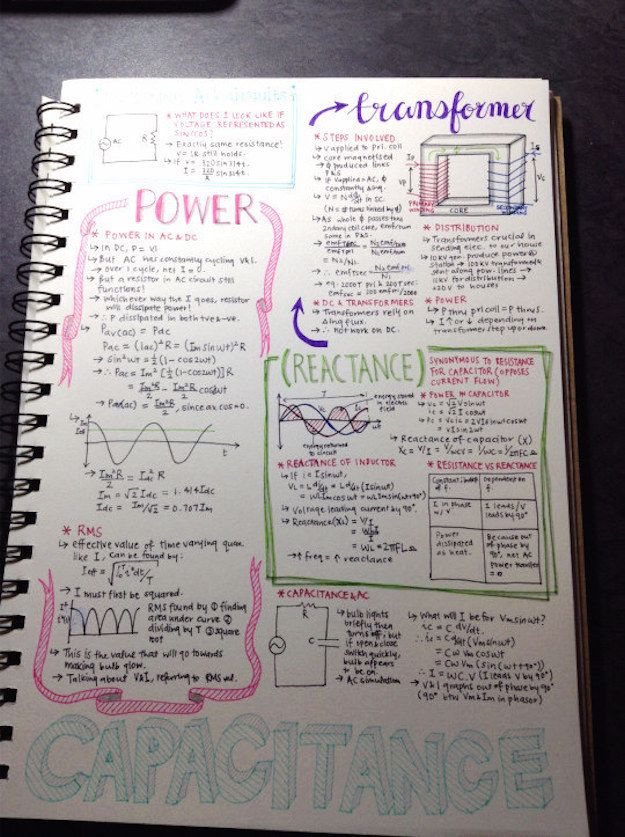 * WHAT DOES I LOOK LIKE IF
VOLTAGE REPRESENTED AS
SIN/COS?
↳ Exactly same resistance!
V = IR still holds.
↳ If V = 320 sin 314t.
I = 320/R sin 314t.
AC
R
POWER
* POWER IN AC & DC
↳ In DC, P = VI
↳ But AC has constantly cycling V&I.
→ Over 1 cycle, net I = 0.
↳ But a resistor in AC circuit still
functions!
→ Whichever way the I goes, resistor
will dissipate power!
→ ∴ P dissipated in both +ve & -ve.
↳ Pav(ac) = Pdc
Pac = (Iac)²R = (Im sin wt)²R
→ sin²wt = ½(1 - cos2wt)
→ ∴ Pac = Im² [½(1-cos2wt)]R
= Im²R/2 - Im²R/2 cos2wt
→ Pav(ac) = Im²R/2, since av cos = 0.
Im
Idc
t
→ Im²R/2 = Idc²R
→ Im = √2 Idc = 1.414Idc
Idc = Im/√2 = 0.707 Im
* RMS
↳ effective value of time varying quan.
like I, can be found by:
→ I must first be squared.
RMS found by ① finding
area under curve ②
dividing by T ③ square
root
→ This is the value that will go towards
making bulb glow.
→ Talking about V&I, referring to RMS val.
transformer
* STEPS INVOLVED
↳ V applied to pri. coil
↳ core magnetised
→ φ produced links
P&S
↳ If V applied = AC, φ
constantly Δing.
(N = # turns linked by φ)
↳ As whole φ passes thru
2ndary coil core, emf/turn
same in P&S.
= N2/N1
Ip
Vp
PRIMARY
WINDING
CORE
SECONDARY
Is
Vs
* DC & TRANSFORMERS
↳ Transformers rely on
Δing flux
→ ∴ not work on DC.
* DISTRIBUTION
↳ Transformers crucial in
sending elec. to our house
* POWER
↳ P thru pri coil = P thru s.
↳ I ↑ or ↓ depending on
transformer step up or down.
(REACTANCE)
SYNONYMOUS TO RESISTANCE
FOR CAPACITOR (OPPOSES
CURRENT FLOW)
T
energy stored
in electric
field
energy returned
to circuit
* POWER IN CAPACITOR
↳ vc = √2 V sin wt
ic = √2 I cos wt
= VI sin 2wt
↳ Reactance of capacitor (X)
* REACTANCE OF INDUCTOR
↳ If i = I sin wt,
VL = L di/dt = L d/dt (I sin wt)
= wL Im cos wt = wL Im sin(wt+90°)
↳ Voltage leading current by 90°.
↳ Reactance (XL) = V/I
= WL = 2πFL Ω
→ ↑ freq = ↑ reactance
* RESISTANCE VS REACTANCE
Constant, indep.
of f.
Dependent on
f.
I in phase
w/ V
I leads/V
leads by 90°
Power
dissipated
as heat.
Because out
of phase by
90°, net AC
power transfer
= 0
* CAPACITANCE & AC
R
C
↳ bulb lights
briefly then
turns off; but
if open & close
switch quickly,
bulb appears
to be on.
→ AC simulation
↳ What will I be for Vm sin wt?
ic = C dV/dt.
∴ ic = C d/dt (Vm sin wt)
= Cw Vm cos wt
= Cw Vm (sin (wt+90°))
∴ I = WC.V (I leads V by 90°)
→ V&I graphs out of phase by 90°
(90° btw Vm & Im in phasor)
CAPACITANCE